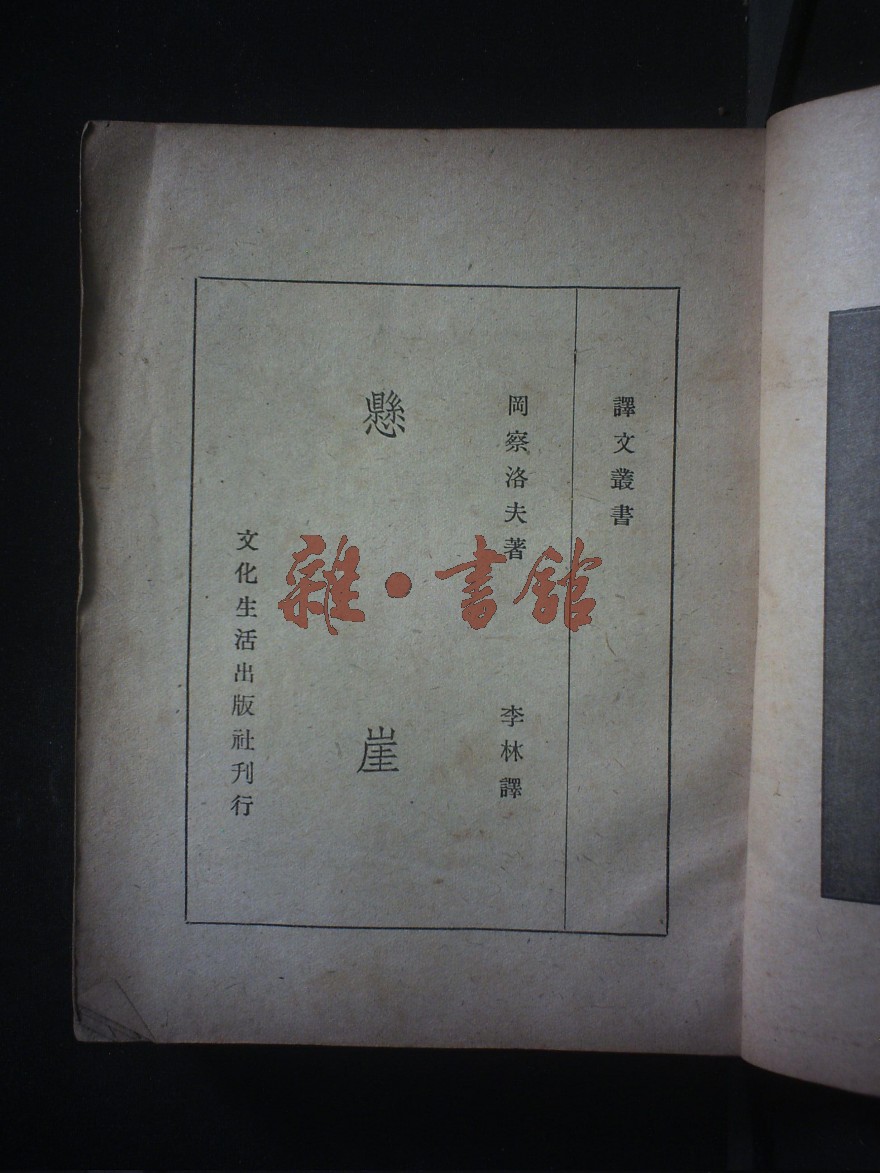 譯文叢書
岡察洛夫著
李林譯
懸崖
文化生活出版社刊行
雜·書館